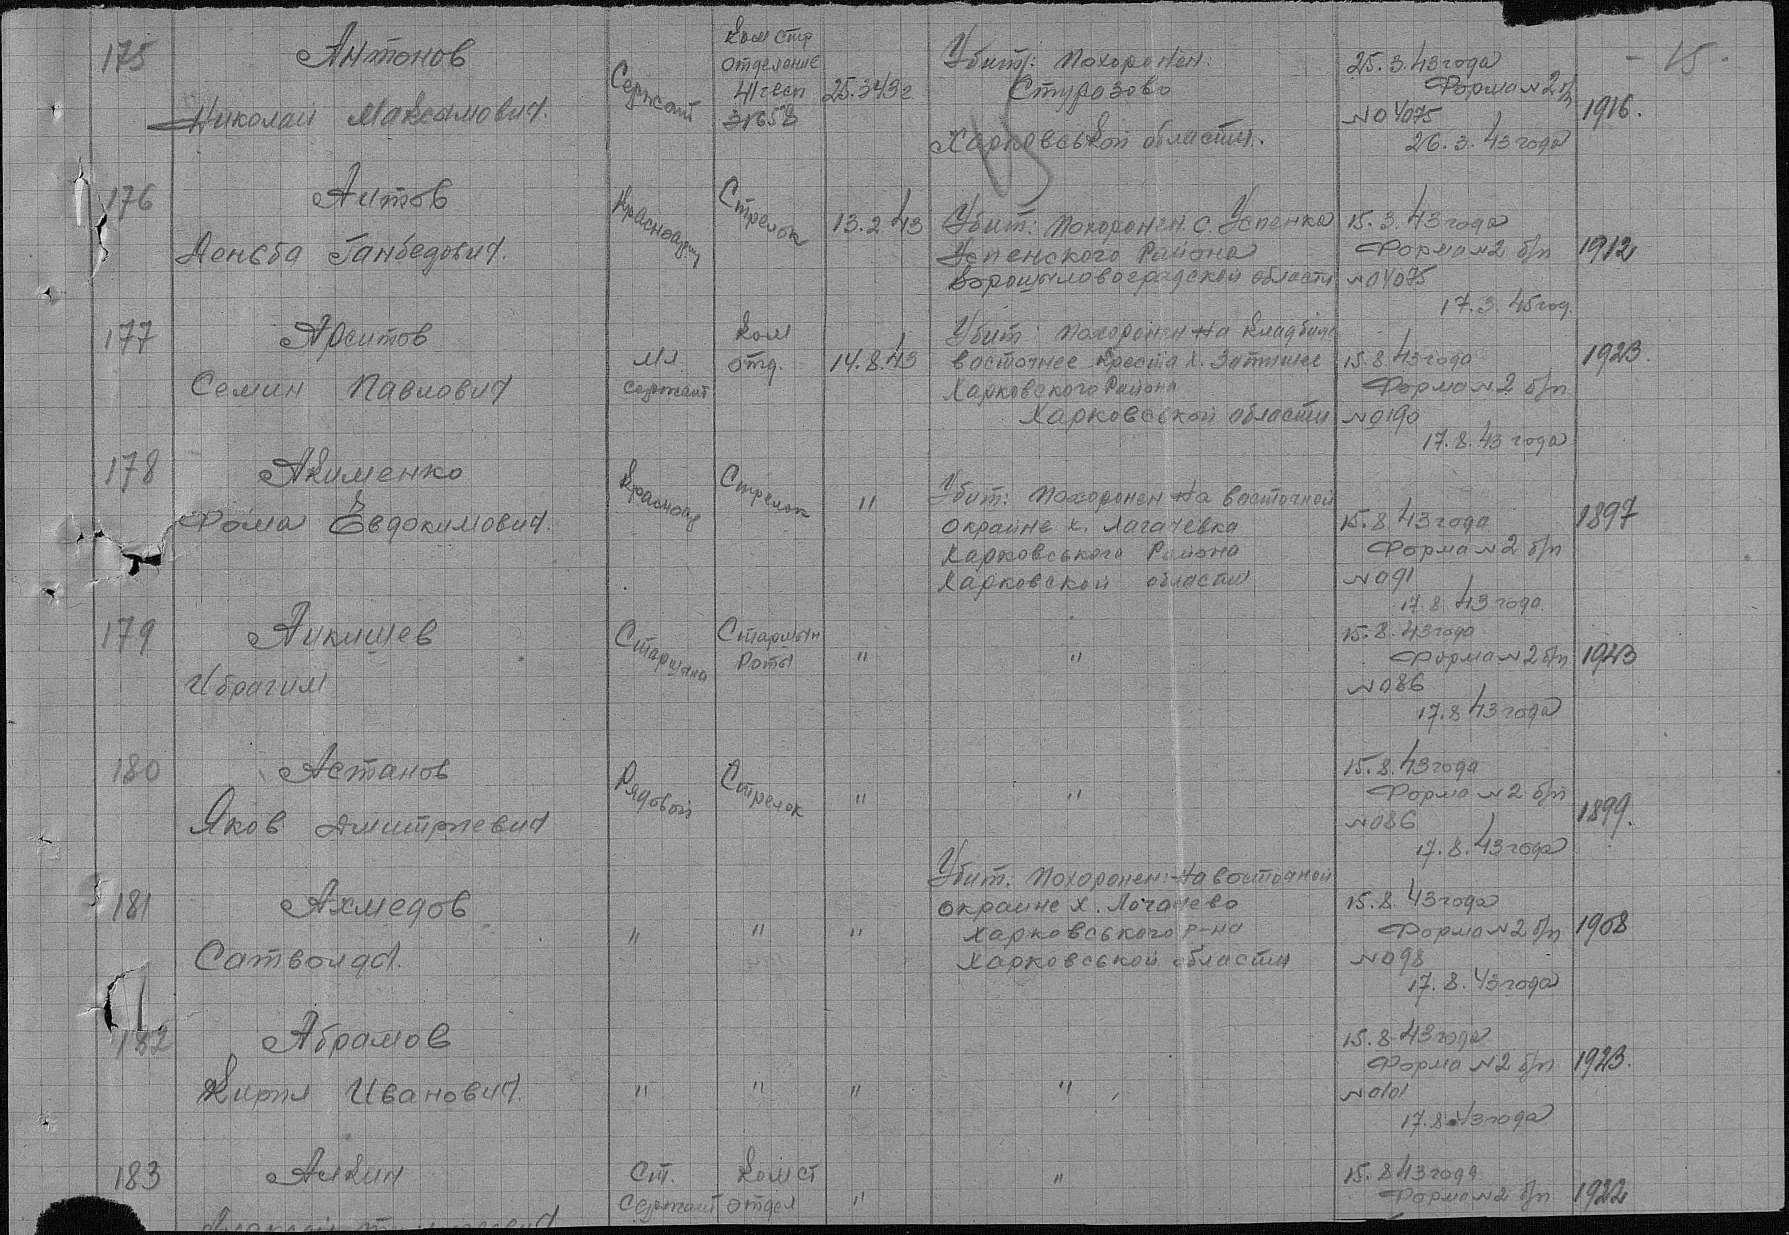 175 Антонов
Николай Максимович.
Сержант
Ком стр
отделение
41 гсп
31658
25.3.43г
Убит: Похоронен.
Харковськой области.
25.3.43 года
Форма №2 б/п
№04075
26.3.43 года
1916.
- 15.
176 Аитов
Стрелок
13.2.43
Убит: Похоронен. с. Успенка
Успенского Района
Ворошиловоградской области
15.3.43 года
Форма №2 б/п
№04075
17.3.45 год.
1912
177
Семин Павлович
Мл.
сержант
Ком
отд.
14.8.43
Убит: Похоронен на кладбище
восточнее креста х. Затишье
Харковского Района
Харковськой области
15.8.43 года
Форма №2 б/п
№0190
17.8.43 года
1923.
178 Акименко
Фома Евдокимович.
Красноар
Стрелок
"
Убит: Похоронен на восточной
окраине х. Лагачевка
Харковського Района
Харковской области
15.8.43 года
Форма №2 б/п
№091
17.8.43 года
1897
179 Аикишев
Ибрагим
Старшина
Старшин
Роты
"
"
15.8.43 года
Форма №2 б/п
№086
17.8.43 года
1923
180 Астанов
Яков Дмитриевич
Рядовой
Стрелок
"
"
15.8.43 года
Форма №2 б/п
№086
17.8.43 года
1899.
181 Ахмедов
"
"
"
Убит. Похоронен: На восточной
окраине х. Логачево
Харковського р-на
Харковськой области
15.8.43 года
Форма №2 б/п
№098
17.8.43 года
1908
182 Абрамов
Кирил Иванович.
"
"
"
"
15.8.43 года
Форма №2 б/п
№0101
17.8.43 года
1923.
183 Алкин
Ст.
Сержант
Ком ст
отдел
"
"
15.8.43 года
Форма №2 б/п
1922